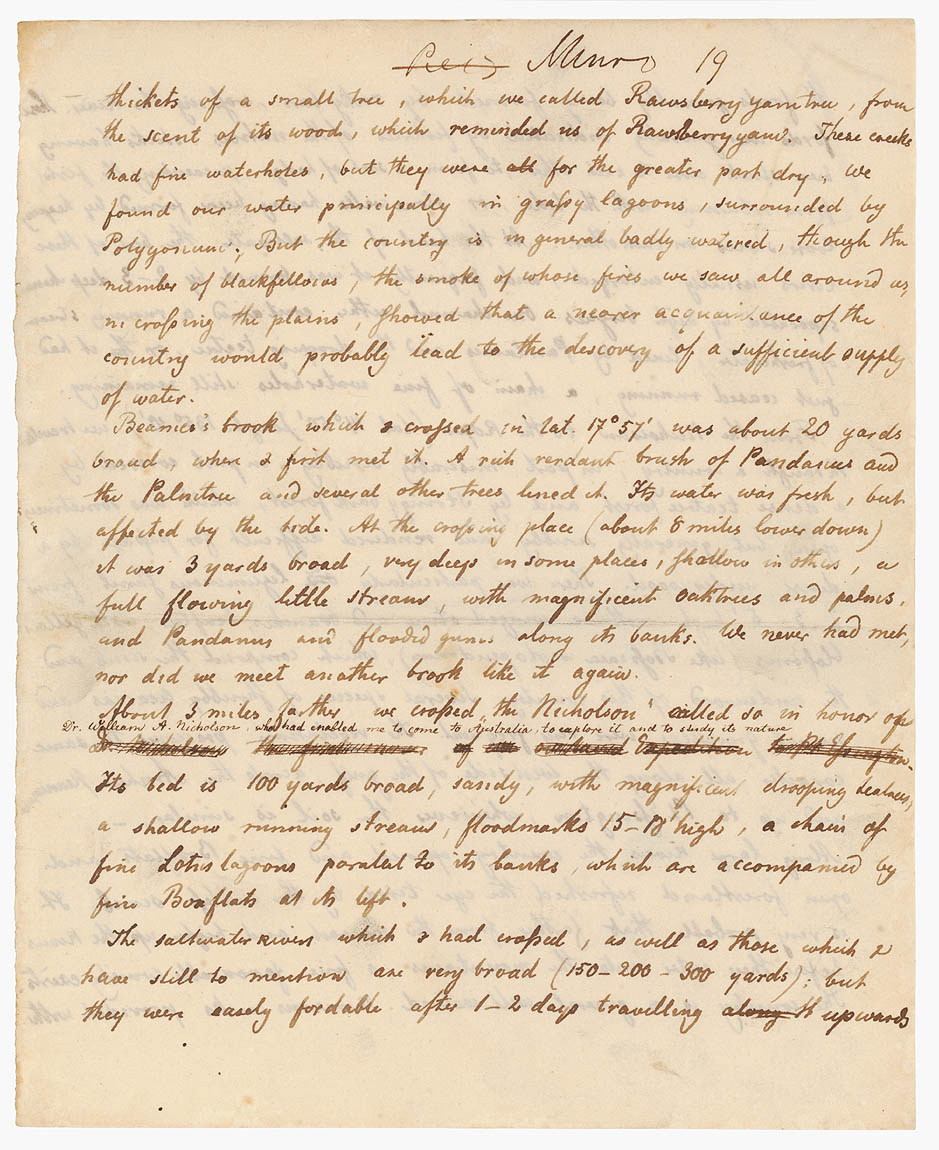 Munro 19
thickets of a small tree, which we called Rawsberryyamtree, from
the scent of its wood, which reminded us of Rawsberryyam. These creeks
had fine waterholes, but they were all for the greater part dry; we
found our water principally in graſsy lagoons, surrounded by
Polygonum. But the country is in general badly watered, though the
number of blackfellows, the smoke of whose fires we saw all around us,
in croſsing the plains, showed that a nearer acquaintance of the
country would probably lead to the descovery of a sufficient supply
of water.
Beames's brook which I croſsed in lat. 17° 57' was about 20 yards
broad, where I first met it. A rich verdant brush of Pandanus and
the Palmtree and several other trees lined it. Its water was fresh, but
affected by the tide. At the croſsing place (about 8 miles lower down)
it was 3 yards broad, very deep in some places, shallow in others, a
full flowing little stream, with magnificent oaktrees and palms,
and Pandanus and flooded gums along its banks. We never had met,
nor did we meet another brook like it again.
About 3 miles farther we croſsed "the Nicholson" called so in honor of
Dr. William A. Nicholson, who had enabled me to come to Australia, to explore it and to study its nature
Dr. Nicholson of overland Expedition
Its bed is 100 yards broad, sandy, with magnificent drooping teatrees,
a shallow running stream, floodmarks 15–18' high, a chain of
fine Lotus lagoons paralel to its banks, which are accompanied by
fine Boxflats at its left.
The saltwater rivers which I had croſsed, as well as those which I
have still to mention are very broad (150–200–300 yards); but
they were easely fordable after 1–2 days travelling along it upwards